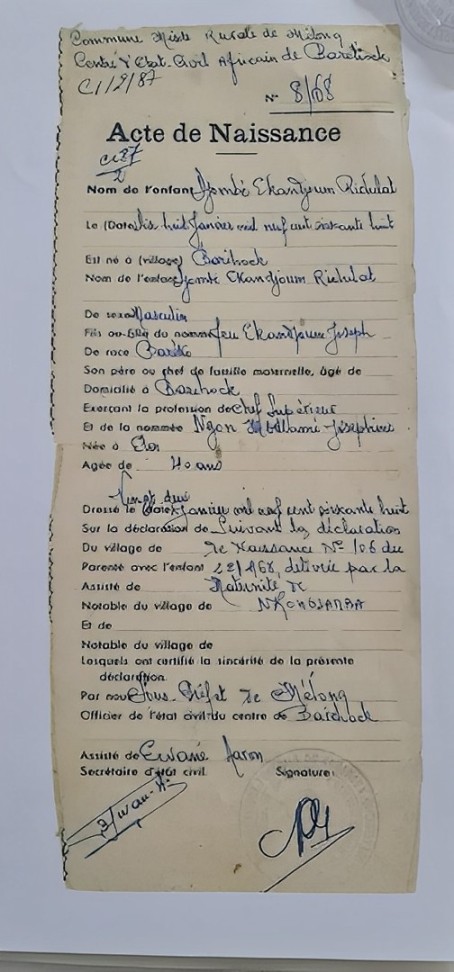 Commune Mixte Rurale de Mélong
Centre d'Etat-Civil Africain de Barehock
C1/2/87
N° 8/68
Acte de Naissance
Nom de l'enfant Ekandjoum Richelat
Le (Date) Dix huit Janvier mil neuf cent soixante huit
Est né à (village) Barehock
Nom de l'enfant Ekandjoum Richelat
De sexe Masculin
Fils ou fille du nommé feu Ekandjoum Joseph
De race
Son père ou chef de famille maternelle, âgé de
Domicilié à Barehock
Exerçant la profession de Chef Supérieur
Et de la nommée Ngon Joséphine
Née à
Agée de 40 ans
Vingt deux
Dressé le (date) Janvier mil neuf cent soixante huit
Sur la déclaration de Suivant la déclaration
Du village de de Naissance N° 106 du
Parenté avec l'enfant 22/1/68, délivrée par la
Assisté de Maternité de
Notable du village de NKONGSAMBA
Et de
Notable du village de
Lesquels ont certifié la sincérité de la présente
déclaration
Par nous Sous-Préfet de Mélong
Officier de l'état civil du centre de Barehock
Assisté de Ewane Aaron
Secrétaire d'état civil. Signature: